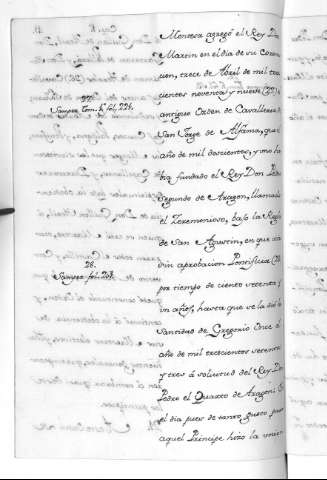 Montesa agregó el Rey Dn
Martin en el dia de su Corona
cion, trece de Abril de mil tres
cientos noventa y nueve (27) la
antigua Orden de Cavalleria de
San Jorge de Alfama, que el
año de mil doscientos, y uno ha
bia fundado el Rey Don Pedro
Segundo de Aragon, llamado
el Zeremonioso, baxo la Regla
de San Agustin, en que estu
vo sin aprobacion Pontificia (28)
por tiempo de ciento setenta y
un años, hasta que se la dió la
Santidad de Gregorio Once el
año de mil trescientos setenta
y tres á solicitud del Rey Don
Pedro el Quarto de Aragon: En
el dia pues de tanto gusto para
aquel Principe hizo la union
27.
Samper Tom. fol. 226.
28.
Samper fol. 208.